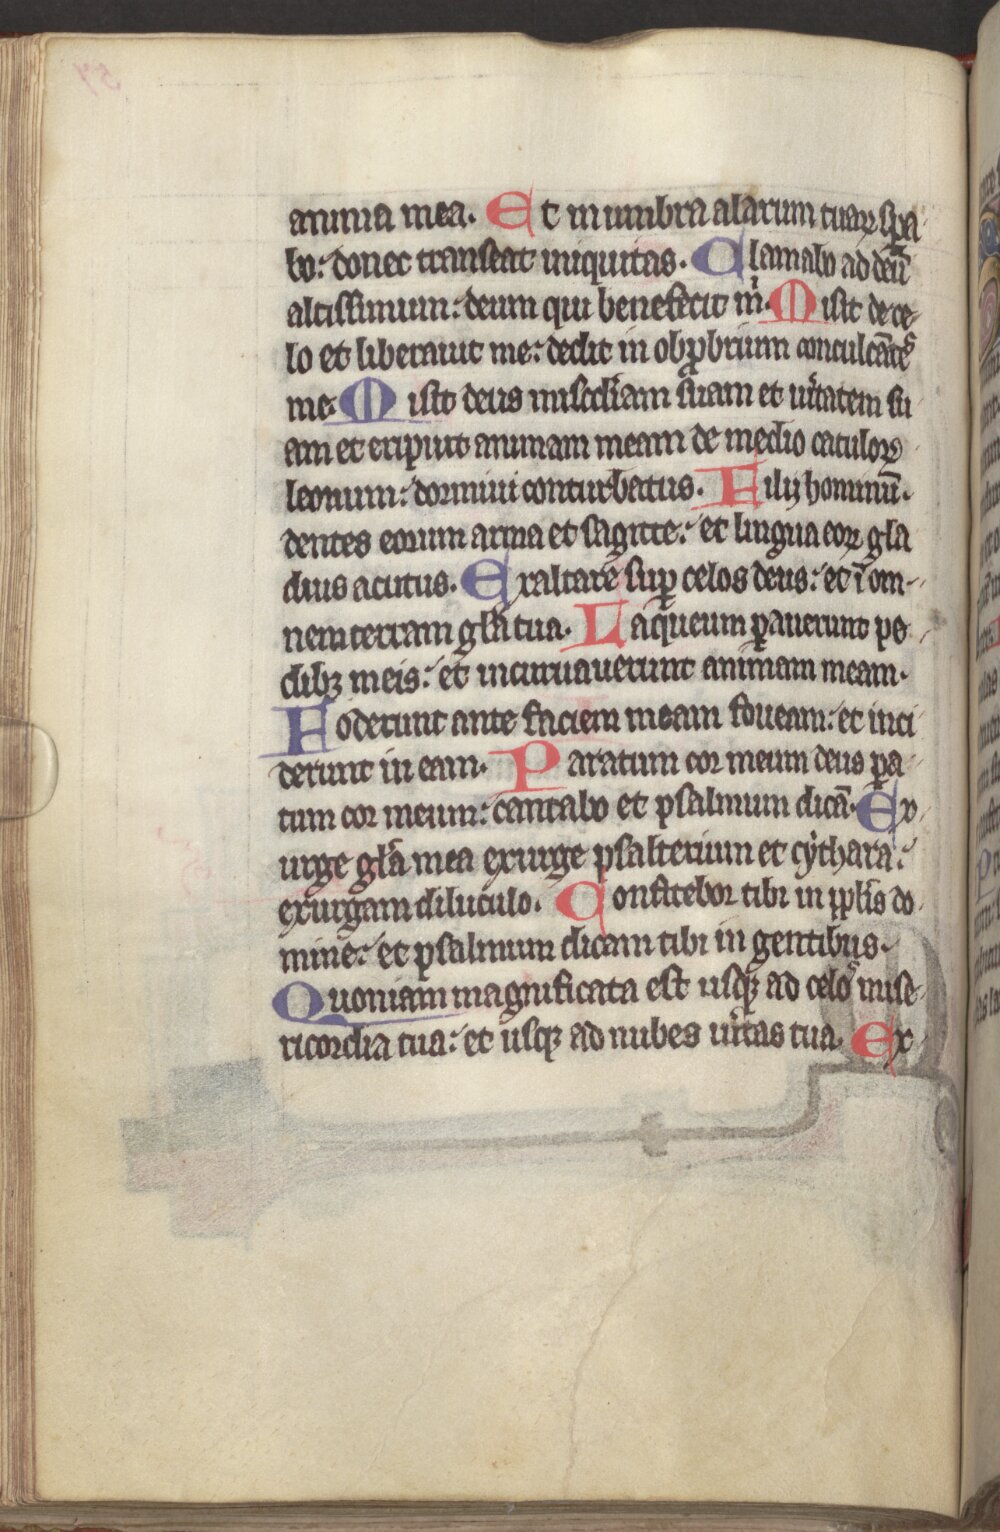 anima mea. Et in umbra alarum tuaꝝ spa
bo: donec transeat iniquitas. Clamabo ad deū
altissimum: deum qui benefecit m̍. Misit de ce-
lo et liberauit me: dedit in obꝓbrium conculcātes
me. Misit deus mīscdiam suam et uītatem su
am et eripuit animam meam de medio catuloꝝ
leonum: dormiui conturbatus. Filij hominū.
dentes eorum arma et sagitte: et lingua eoꝝ gla
dius acutus. Exaltare suꝑ celos deus: et ī om-
nem terram gl̄a tua. Laqueum ꝑauerunt pe
dibꝫ meis: et incuruauerunt animam meam.
Foderunt ante faciem meam foueam: et inci
derunt in eam. Paratum cor meum deus ꝑa
tum cor meum: cantabo et psalmum dicā. Ex
urge gl̄a mea exurge psalterium et cythara:
exurgam diluculo. Confitebor tibi in ppl̄is do
mine: et psalmum dicam tibi in gentibus.
Quoniam magnificata est usqꝫ ad celos mise
ricordia tua: et usqꝫ ad nubes uītas tua. Ex